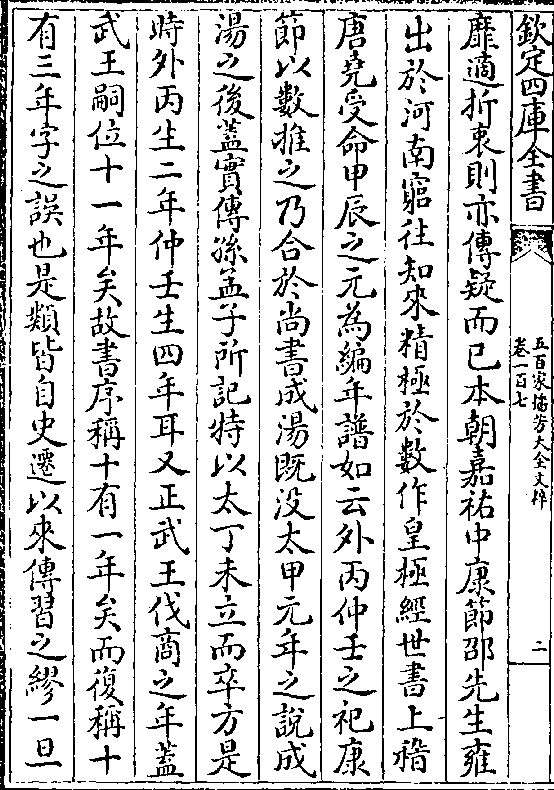 欽定四庫全書
五百家播芳大全文粹
卷一百七
二
靡適折衷則亦傳疑而已本朝嘉祐中康節邵先生雍
出於河南窮往知來精極於數作皇極經世書上稽
唐堯受命甲辰之元為編年譜如云外丙仲壬之祀康
節以數推之乃合於尚書成湯既没太甲元年之說成
湯之後蓋實傳孫孟子所記特以太丁未立而卒方是
時外丙生二年仲壬生四年耳又正武王伐商之年蓋
武王嗣位十一年矣故書序稱十有一年矣而復稱十
有三年字之誤也是類皆自史遷以來傳習之繆一旦